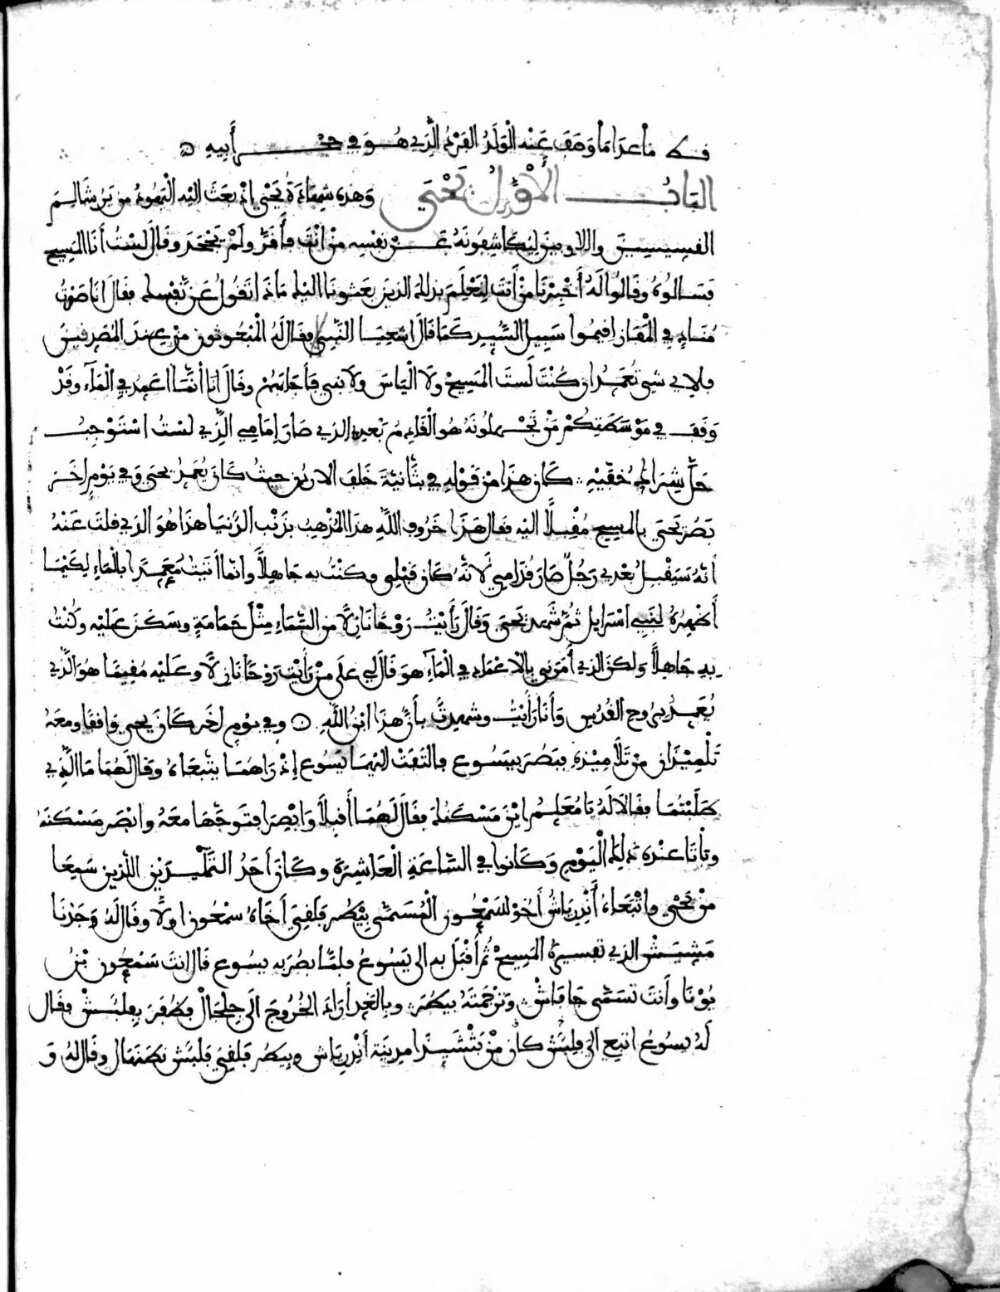 قط ما عدا ما وصف عنه الولد الفرد الذي هو في حجر أبيه
الباب الأول يحيى وهذه شهادة يحيى إذ بعث اليه اليهود من يرشالم
القسيسين واللاويين ليكاشفونه عن نفسه من انت فأقر ولم يجحد وقال لست أنا المسيح
فسألوه وقالوا له أخبرنا من أنت لنعلم بذلك الذين بعثونا اليك ماذا تقول عن نفسك فقال انا صوت
مناد في المفاز اقيموا سبيل السيد كما قال اشعيا النبي فقال له المبعوثون من عند المصرفين
فلاي شي تعمد ان كنت لست المسيح ولا الياس ولا نبي فأجابهم وقال انا انما اعمد في الماء وقد
وقف في موسطتكم من تجهلونه هو القادم بعدي الذي صار امامي الذي لست استوجب
حل شراك خفيه كان هذا من قوله في بثانية خلف الاردن حيث كان يعمد يحيى وفي يوم اخر
بصر يحيى بالمسيح مقبلا اليه فقال هذا خروف الله هذا المذهب بذنب الدنيا هذا هو الذي قلت عنه
انه سيقبل بعدي رجل صار قدامي لانه كان قبلي وكنت به جاهلا وانما أتيت معمدا بالماء لكيما
أظهره لبني اسرايل ثم شهد يحيى وقال رأيت روحا نازلا من السماء مثل حمامة وسكن عليه وكنت
به جاهلا ولكن الذي أمرني بالاعماد في الماء هو قال لي على من رأيت روحا نازلا وعليه مقيما هو الذي
يعمد بروح القدس وأنا رأيت وشهدت بأن هذا ابن الله وفي يوم اخر كان يحيى واقفا ومعه
تلميذان من تلاميذه فبصر بيسوع فالتفت اليهما يسوع إذ راهما يتبعاه وقال لهما ما الذي
طلبتما فقالا له يا معلم اين مسكنك فقال لهما أقبلا وابصرا فتوجها معه وابصر مسكنه
وباتا عنده ذلك اليوم وكانوا في الساعة العاشرة وكان أحد التلميذين اللذين سمعا
من يحيى واتبعاه أندرياش أخو لسمعون المسمى بيطر فلقي أخاه سمعون اولا وقال له وجدنا
مشيش الذي تفسيره المسيح ثم أقبل به الى يسوع فلما بصر به يسوع قال انت سمعون بن
يونا وأنت تسمى جافاش وترجمته بيطر وبالغد أراد الخروج الى جلجال فظفر بفلبش فقال
له يسوع اتبع الي فلبش كان من بتشيدا مدينة أندرياش وبيطر فلقي فلبش نطنال وقال له و